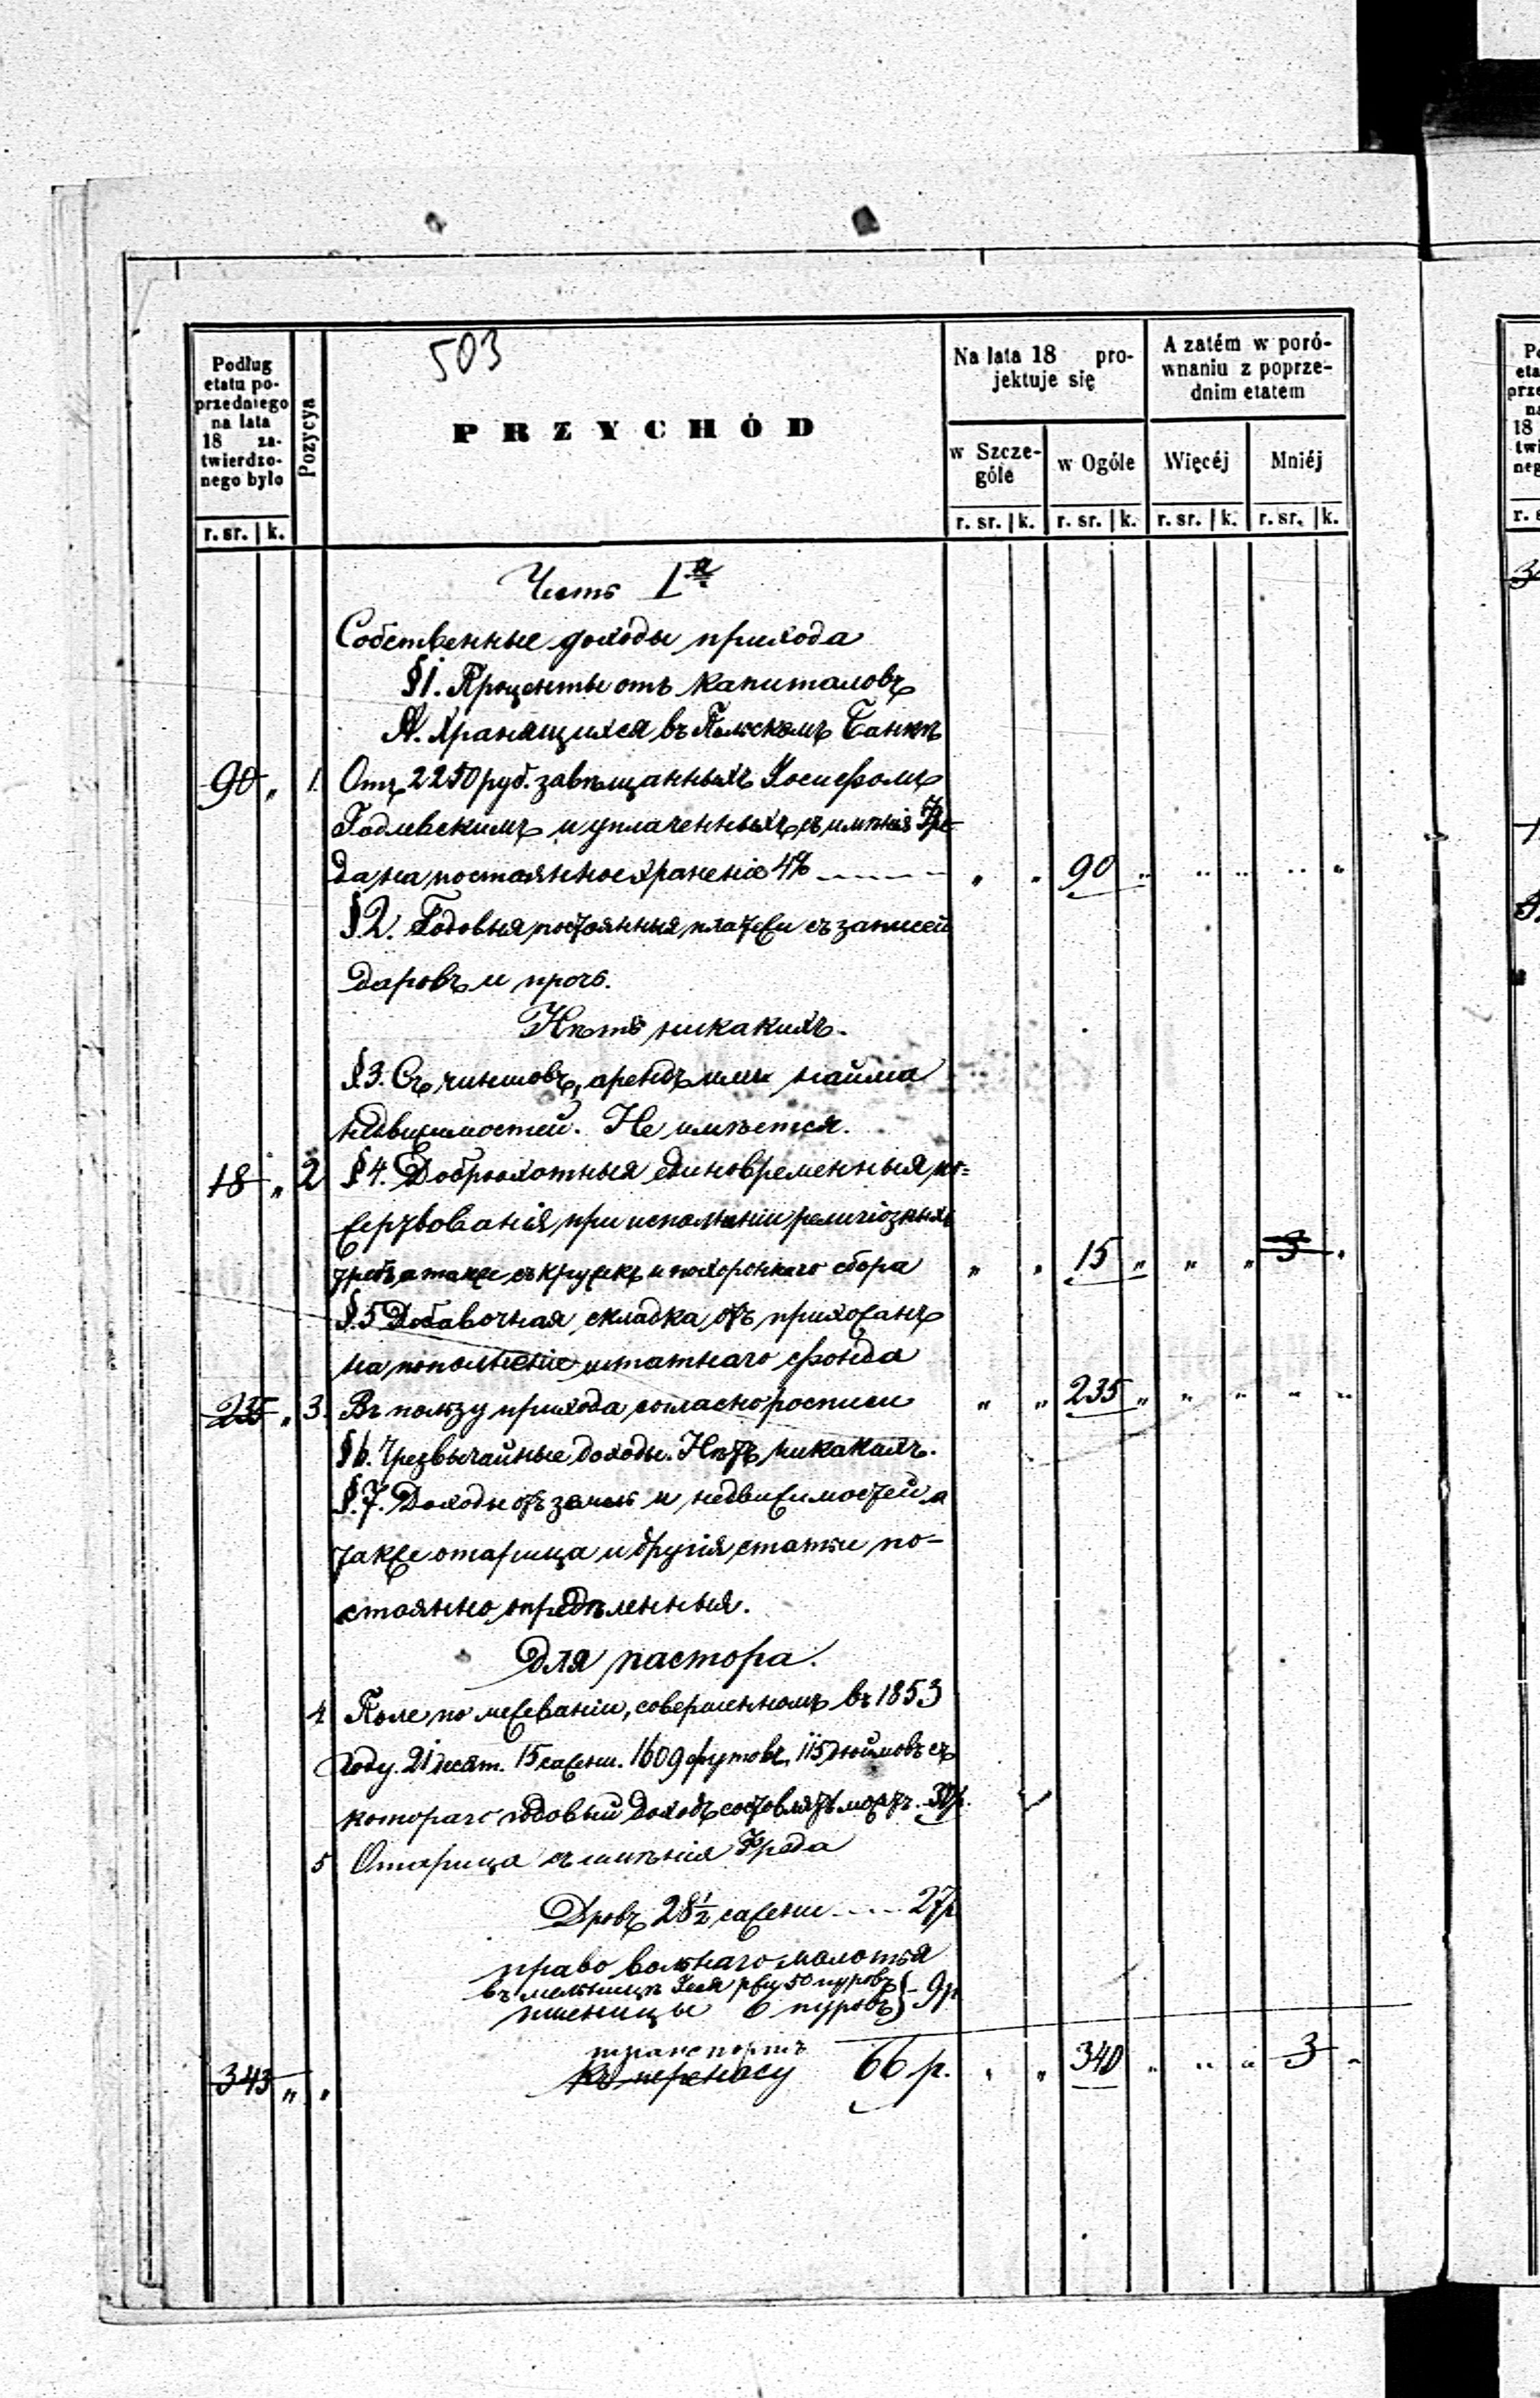 503
Podług
etatu po-
przedniego
na lata
18 za-
twierdzo-
nego było
r. sr. k.
Pozycya
PRZYCHÓD
Na lata 18 pro-
jektuje się
w Szcze-
góle
w Ogóle
r. sr. k. r. sr. k.
A zatém w poró-
wnaniu z poprze-
dnim etatem
Więcéj Mniéj
r. sr. k. r. sr. k.
Часть Iя
Собственные доходы прихода
§1. Проценты отъ капиталовъ
А. Хранящихся въ Польскомъ Банкѣ
90 „ 1. Отъ 2250 руб. завѣщанныхъ Іосифомъ
Годлевскимъ и уплаченныхъ съ имѣнія Фре-
да на постоянное храненіе 4% „ „ 90 „ „ „ „ „
§2. Годовыя постоянныя платежи съ записей
даровъ и проч.
Нѣтъ никакихъ.
§3. Съ чиншовъ, арендъ или найма
недвижимостей. Не имѣется.
18 „ 2 §4. Доброхотныя единовременныя по=
жертвованія при исполненіи религіозныхъ
требъ а также съ кружекъ и похороннаго сбора „ „ 15 „ „ „ 3 „
§5 Добавочная складка отъ прихожанъ
на пополненіе штатнаго фонда
235 „ 3. Въ пользу прихода согласно росписи „ „ 235 „ „ „ „ „
§6. Чрезвычайные доходы. Нѣтъ никакихъ.
§.7. Доходы отъ земли и недвижимостей а
также ота­рица и другія статьи по-
стоянно опредѣленныя.
Для пастора.
4 Поле по межеваніи, совершенномъ въ 1853
году. 21 десят. 15 сажен. 1609 футовъ, 115 дюймовъ съ
котораго годовый доходъ составляетъ 30р.
5 Ота­рица съ имѣнія Фреда
Дровъ 28½ сажени 27р
право вольнаго молотья
въ мельницѣ ржи 50 пуровъ
пшеницы 6 пуровъ } - 9р
транспортъ
343 „ „ къ переносу 66 р. „ „ 340 „ „ „ 3 „